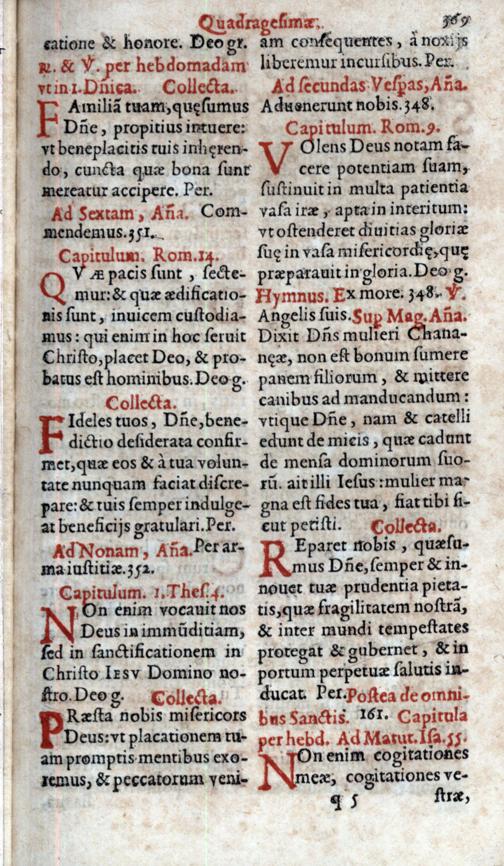 Quadragesimæ. 369
catione & honore. Deo gr.
R. & V. per hebdomadam
vt in 1. Dñica. Collecta.
FAmiliã tuam, quęsumus
Dñe, propitius intuere:
vt beneplacitis tuis inhęren-
do, cuncta quæ bona sunt
mereatur accipere. Per.
Ad Sextam, Aña. Com-
mendemus. 351.
Capitulum. Rom. 14.
QVæ pacis sunt, secte-
mur: & quæ ædificatio-
nis sunt, inuicem custodia-
mus: qui enim in hoc seruit
Christo, placet Deo, & pro-
batus est hominibus. Deo g.
Collecta.
FIdeles tuos, Dñe, bene-
dictio desiderata confir-
met, quæ eos & à tua volun-
tate nunquam faciat discre-
pare: & tuis semper indulge-
at beneficijs gratulari. Per.
Ad Nonam, Aña. Per ar-
ma iustitiæ. 352.
Capitulum. 1. Thes. 4.
NOn enim vocauit nos
Deus in immũditiam,
sed in sanctificationem in
Christo IESV Domino no-
stro. Deo g. Collecta.
PRæsta nobis misericors
Deus: vt placationem tu-
am promptis mentibus exo-
remus, & peccatorum veni-
am consequentes, à noxijs
liberemur incursibus. Per.
Ad secundas Vesp̃as, Aña.
Aduenerunt nobis. 348.
Capitulum. Rom. 9.
VOlens Deus notam fa-
cere potentiam suam,
sustinuit in multa patientia
vasa iræ, apta in interitum:
vt ostenderet diuitias gloriæ
suę in vasa misericordię, quę
præparauit in gloria. Deo g.
Hymnus. Ex more. 348. V.
Angelis suis. Sup Mag. Aña.
Dixit Dñs mulieri Chana-
nęæ, non est bonum sumere
panem filiorum, & mittere
canibus ad manducandum:
vtique Dñe, nam & catelli
edunt de micis, quæ cadunt
de mensa dominorum suo-
rũ. ait illi Iesus: mulier ma-
gna est fides tua, fiat tibi si-
cut petisti. Collecta.
REparet nobis, quæsu-
mus Dñe, semper & in-
nouet tuæ prudentia pieta-
tis, quæ fragilitatem nostrã,
& inter mundi tempestates
protegat & gubernet, & in
portum perpetuæ salutis in-
ducat. Per. Postea de omni-
bus Sanctis. 161. Capitula
per hebd. Ad Matut. Isa. 55.
NOn enim cogitationes
meæ, cogitationes ve-
q 5 stræ,